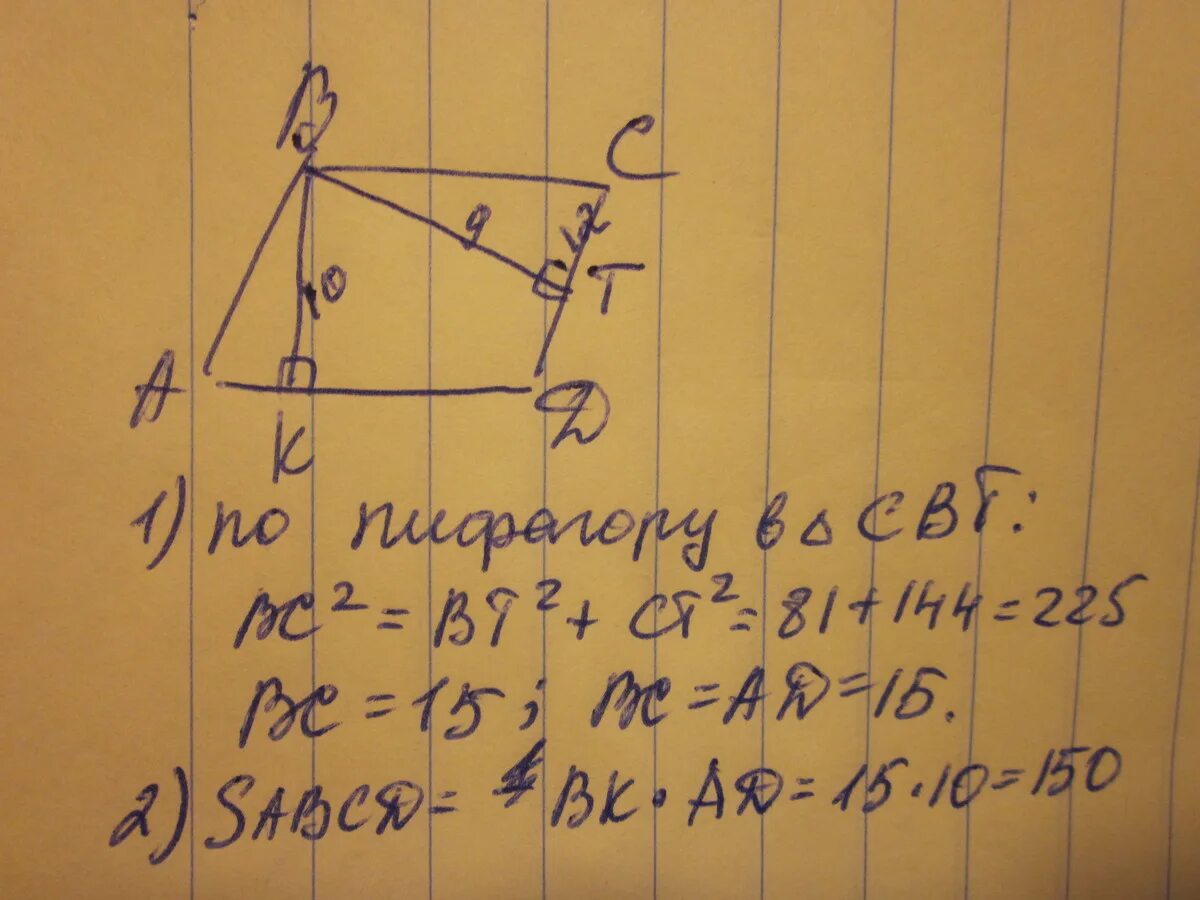 B
C
9
12
T
10
A
K
D
1) по пифагору в △ CBT:
BC² = BT² + CT² = 81 + 144 = 225
BC = 15; BC = AD = 15.
2) SABCD = BK · AD = 15 · 10 = 150